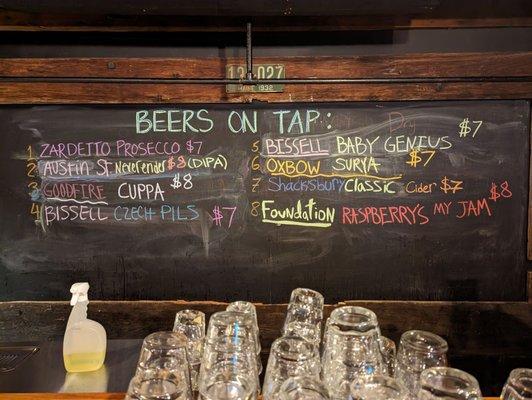 12 027
MAINE 1932
BEERS ON TAP:
1 ZARDETTO PROSECCO $7
2 AUSTIN ST NeverEnder $8 (DIPA)
3 GOODFIRE CUPPA $8
4 BISSELL CZECH PILS $7
5 BISSELL BABY GENIUS $7
6 OXBOW SURYA $7
7 Shacksbury Classic Cider $7
8 Foundation RASPBERRY'S MY JAM $8